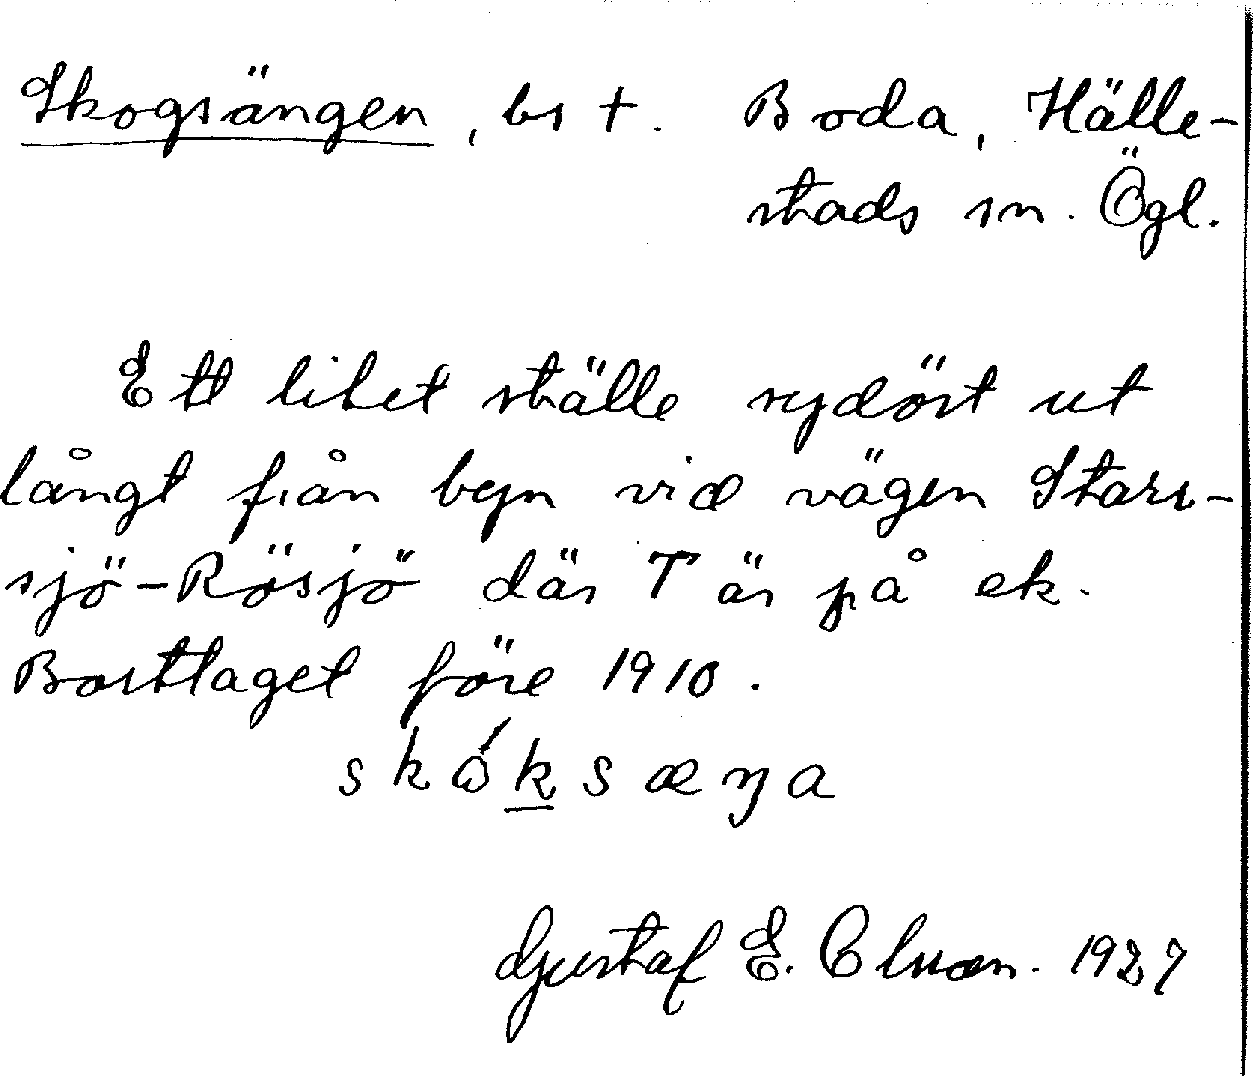 Skogsängen, bs †. Boda, Hälle-
stads sn. Ögl.
Ett litet ställe sydöst ut
långt från byn vid vägen Stors-
sjö-Rösjö där T är på ek.
Borttaget före 1910.
skóksæŋa
Gustaf E. 1927